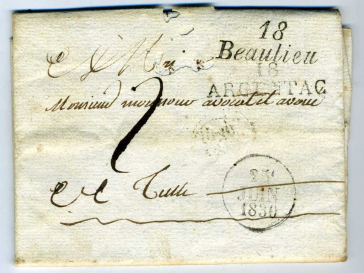 18
Beaulieu
18
ARGENTAC
A M
Monsieur avocat et avoué
2
A Tulle
JUIN
1830